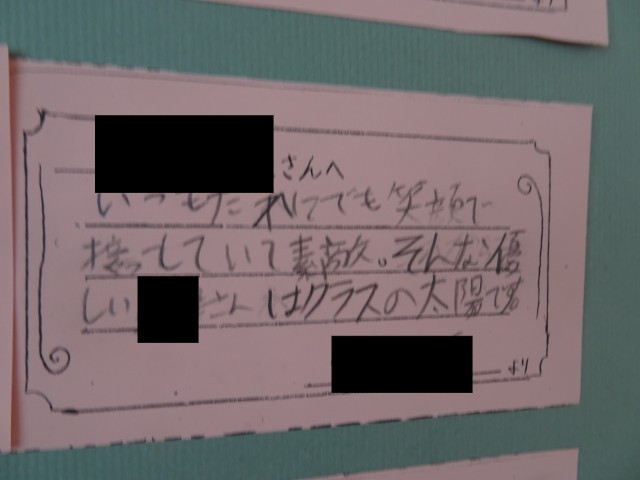 さんへ
いつもだれにでも笑顔で
接っしていて素敵。そんな優
しい さんはクラスの太陽です
より